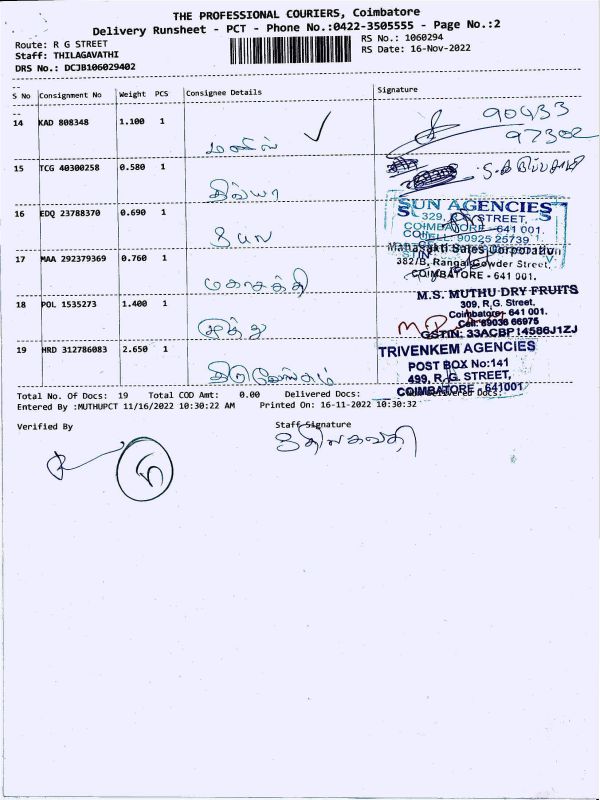 THE PROFESSIONAL COURIERS, Coimbatore
Delivery Runsheet - PCT - Phone No.:0422-3505555 - Page No.:2
Route: R G STREET
Staff: THILAGAVATHI
DRS No.: DCJB106029402
RS No.: 1060294
RS Date: 16-Nov-2022
S No Consignment No Weight PCS Consignee Details Signature
14 KAD 808348 1.100 1
90433
97302
15 TCG 40300258 0.580 1
திவ்யா
16 EDQ 23788370 0.690 1
SUN AGENCIES
329, STREET,
COIMBATORE - 641 001.
CELL: 90925 25739
17 MAA 292379369 0.760 1
மகாசக்தி
Mahasakti Sales Corporation
382/B, Rangai Gowder Street,
COIMBATORE - 641 001.
18 POL 1535273 1.400 1
முத்து
M.S. MUTHU DRY FRUITS
309, R.G. Street,
Coimbatore - 641 001.
Cell: 89036 66975
GSTIN: 33ACBP14586J1ZJ
19 HRD 312786083 2.650 1
TRIVENKEM AGENCIES
POST BOX No:141
499, R.G. STREET,
COIMBATORE - 641001
Total No. Of Docs: 19 Total COD Amt: 0.00 Delivered Docs: Non Delivered Docs:
Entered By :MUTHUPCT 11/16/2022 10:30:22 AM Printed On: 16-11-2022 10:30:32
Verified By Staff Signature